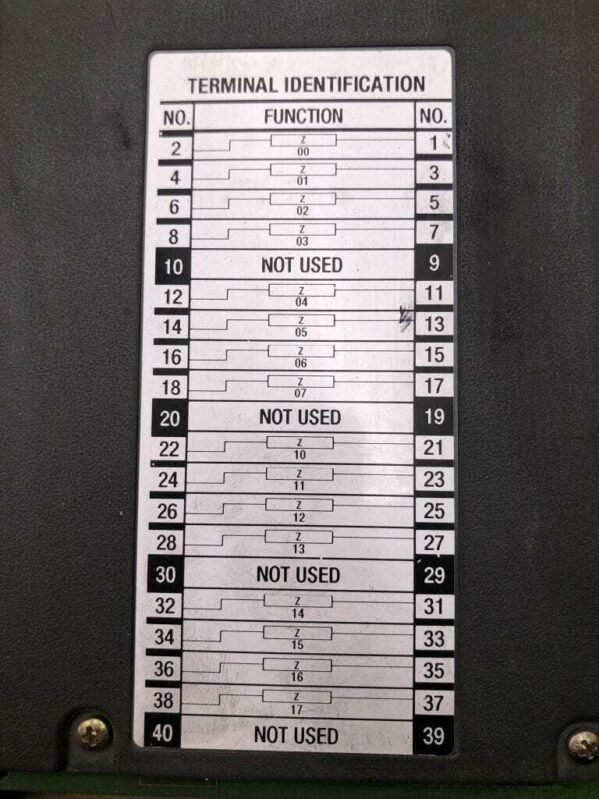 TERMINAL IDENTIFICATION
NO. FUNCTION NO.
2 Z 1
00
4 Z 3
01
6 Z 5
02
8 Z 7
03
10 NOT USED 9
12 Z 11
04
14 Z 13
05
16 Z 15
06
18 Z 17
07
20 NOT USED 19
22 Z 21
10
24 Z 23
11
26 Z 25
12
28 Z 27
13
30 NOT USED 29
32 Z 31
14
34 Z 33
15
36 Z 35
16
38 Z 37
17
40 NOT USED 39